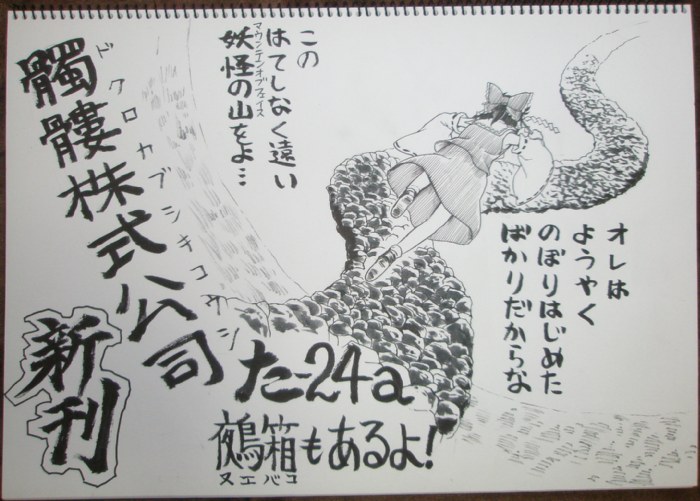 オレは
ようやく
のぼりはじめた
ばかりだからな
この
はてしなく遠い
妖怪の山をよ…
マウンテンオブフェイス
髑髏株式公司
ドクロカブシキコウシ
新刊
た-24a
鵺箱もあるよ!
ヌエバコ